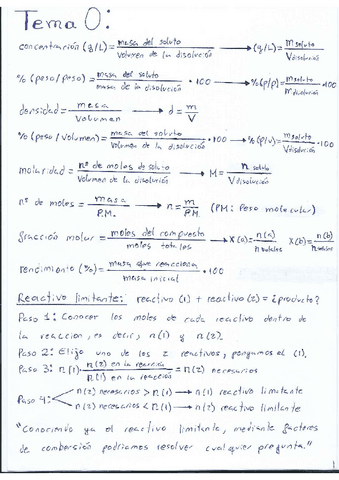 Tema 0:
concentración (g/L) = masa del soluto / volumen de la disolución → (g/L) = m soluto / V disolución
% (peso/peso) = masa del soluto / masa de la disolución · 100 → % (p/p) = m soluto / m disolución · 100
densidad = masa / volumen → d = m / V
% (peso/volumen) = masa del soluto / volumen de la disolución · 100 → % (p/v) = m soluto / V disolución · 100
molaridad = nº de moles de soluto / volumen de la disolución → M = n soluto / V disolución
nº de moles = masa / P.M. → n = m / P.M. (PM: Peso molecular)
fracción molar = moles del compuesto / moles totales → X(a) = n(a) / n totales X(b) = n(b) / n totales
rendimiento (%) = masa que reacciona / masa inicial · 100
Reactivo limitante: reactivo (1) + reactivo (2) = ¿producto?
Paso 1: Conocer los moles de cada reactivo dentro de
la reaccion, es decir, n(1) y n(2).
Paso 2: Elijo uno de los 2 reactivos, pongamos el (1).
Paso 3: n(1) · n(2) en la reacción / n(1) en la reacción = n(2) necesarios
Paso 4: n(2) necesarios > n(1) → n(1) reactivo limitante
n(2) necesarios < n(1) → n(2) reactivo limitante
"Conociendo ya el reactivo limitante, mediante factores
de combersión podríamos resolver cualquier pregunta."
1